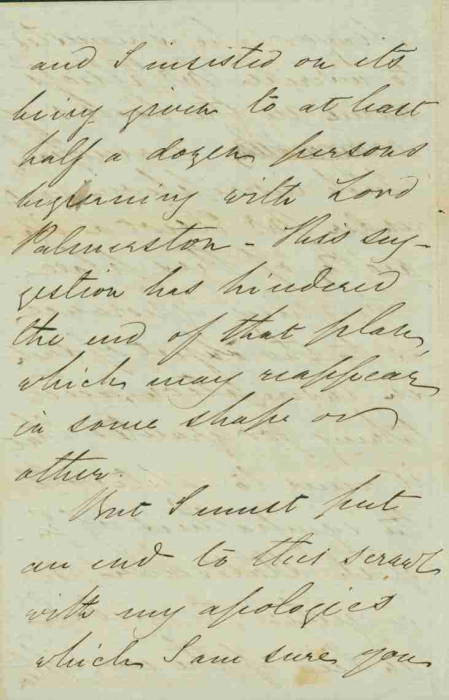 and I insisted on its
being given to at least
half a dozen persons
beginning with Lord
Palmerston - This sug-
gestion has hindered
the end of that plan,
which may reappear
in some shape or
other.
But I must put
an end to this scrawl
with my apologies
which I am sure you